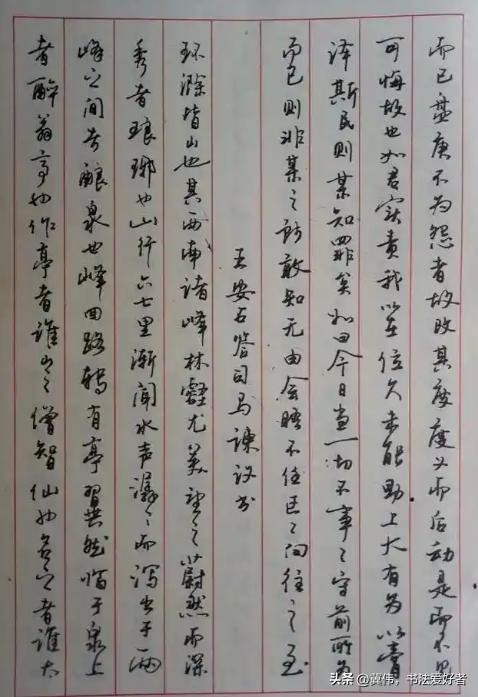 而已盘庚不为怨者故改其度度义而后动是而不见
可悔故也如君实责我以在位久未能助上大有为以膏
泽斯民则某知罪矣如曰今日当一切不事事守前所为
而已则非某之所敢知无由会晤不任区区向往之至
王安石答司马谏议书
环滁皆山也其西南诸峰林壑尤美望之蔚然而深
秀者琅琊也山行六七里渐闻水声潺潺而泻出于两
峰之间者酿泉也峰回路转有亭翼然临于泉上
者醉翁亭也作亭者谁山之僧智仙也名之者谁太
头条 @冀伟,书法爱好者